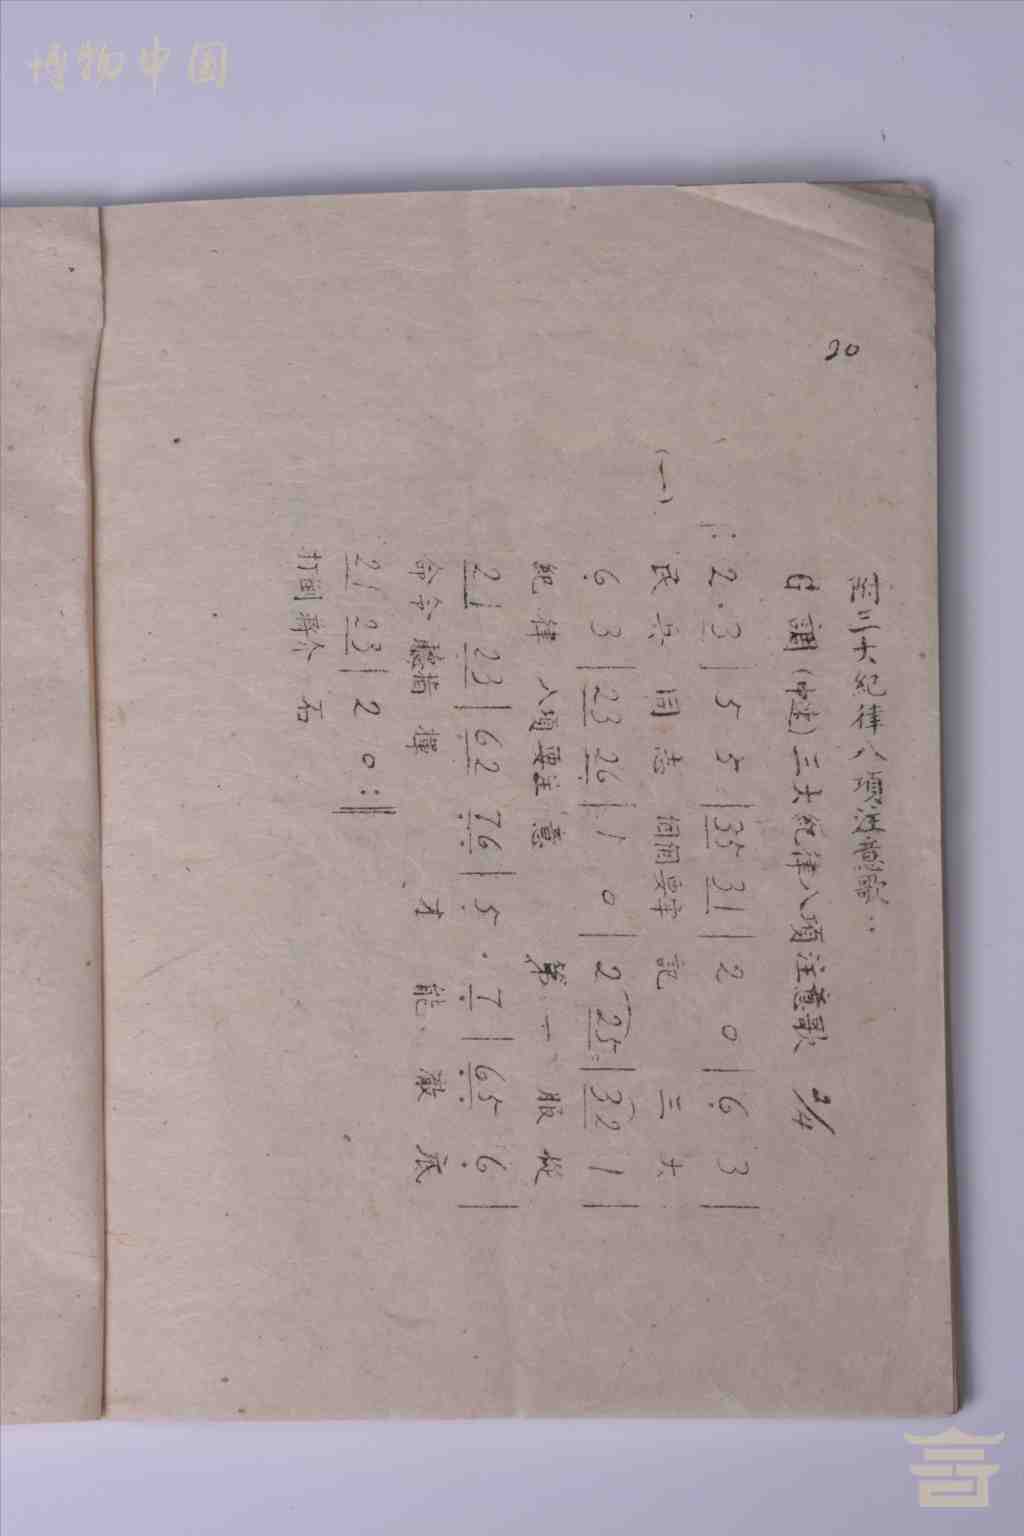 博物中国
20
三大紀律八項注意歌：
G調（中速）三大紀律八項注意歌 2/4
|: 2 · 3 | 5 5 | 35 31 | 2 0 | 6 3 |
(一) 民兵同志個個要牢記 三大
6 3 | 23 26 | 1 0 | 2 25 | 32 1 |
紀律八項要注意 第一、服從
21 23 | 62 76 | 5 · 7 | 65 6 |
命令聽指揮 才能、澈底
21 23 | 2 0 :||
打倒蔣介石